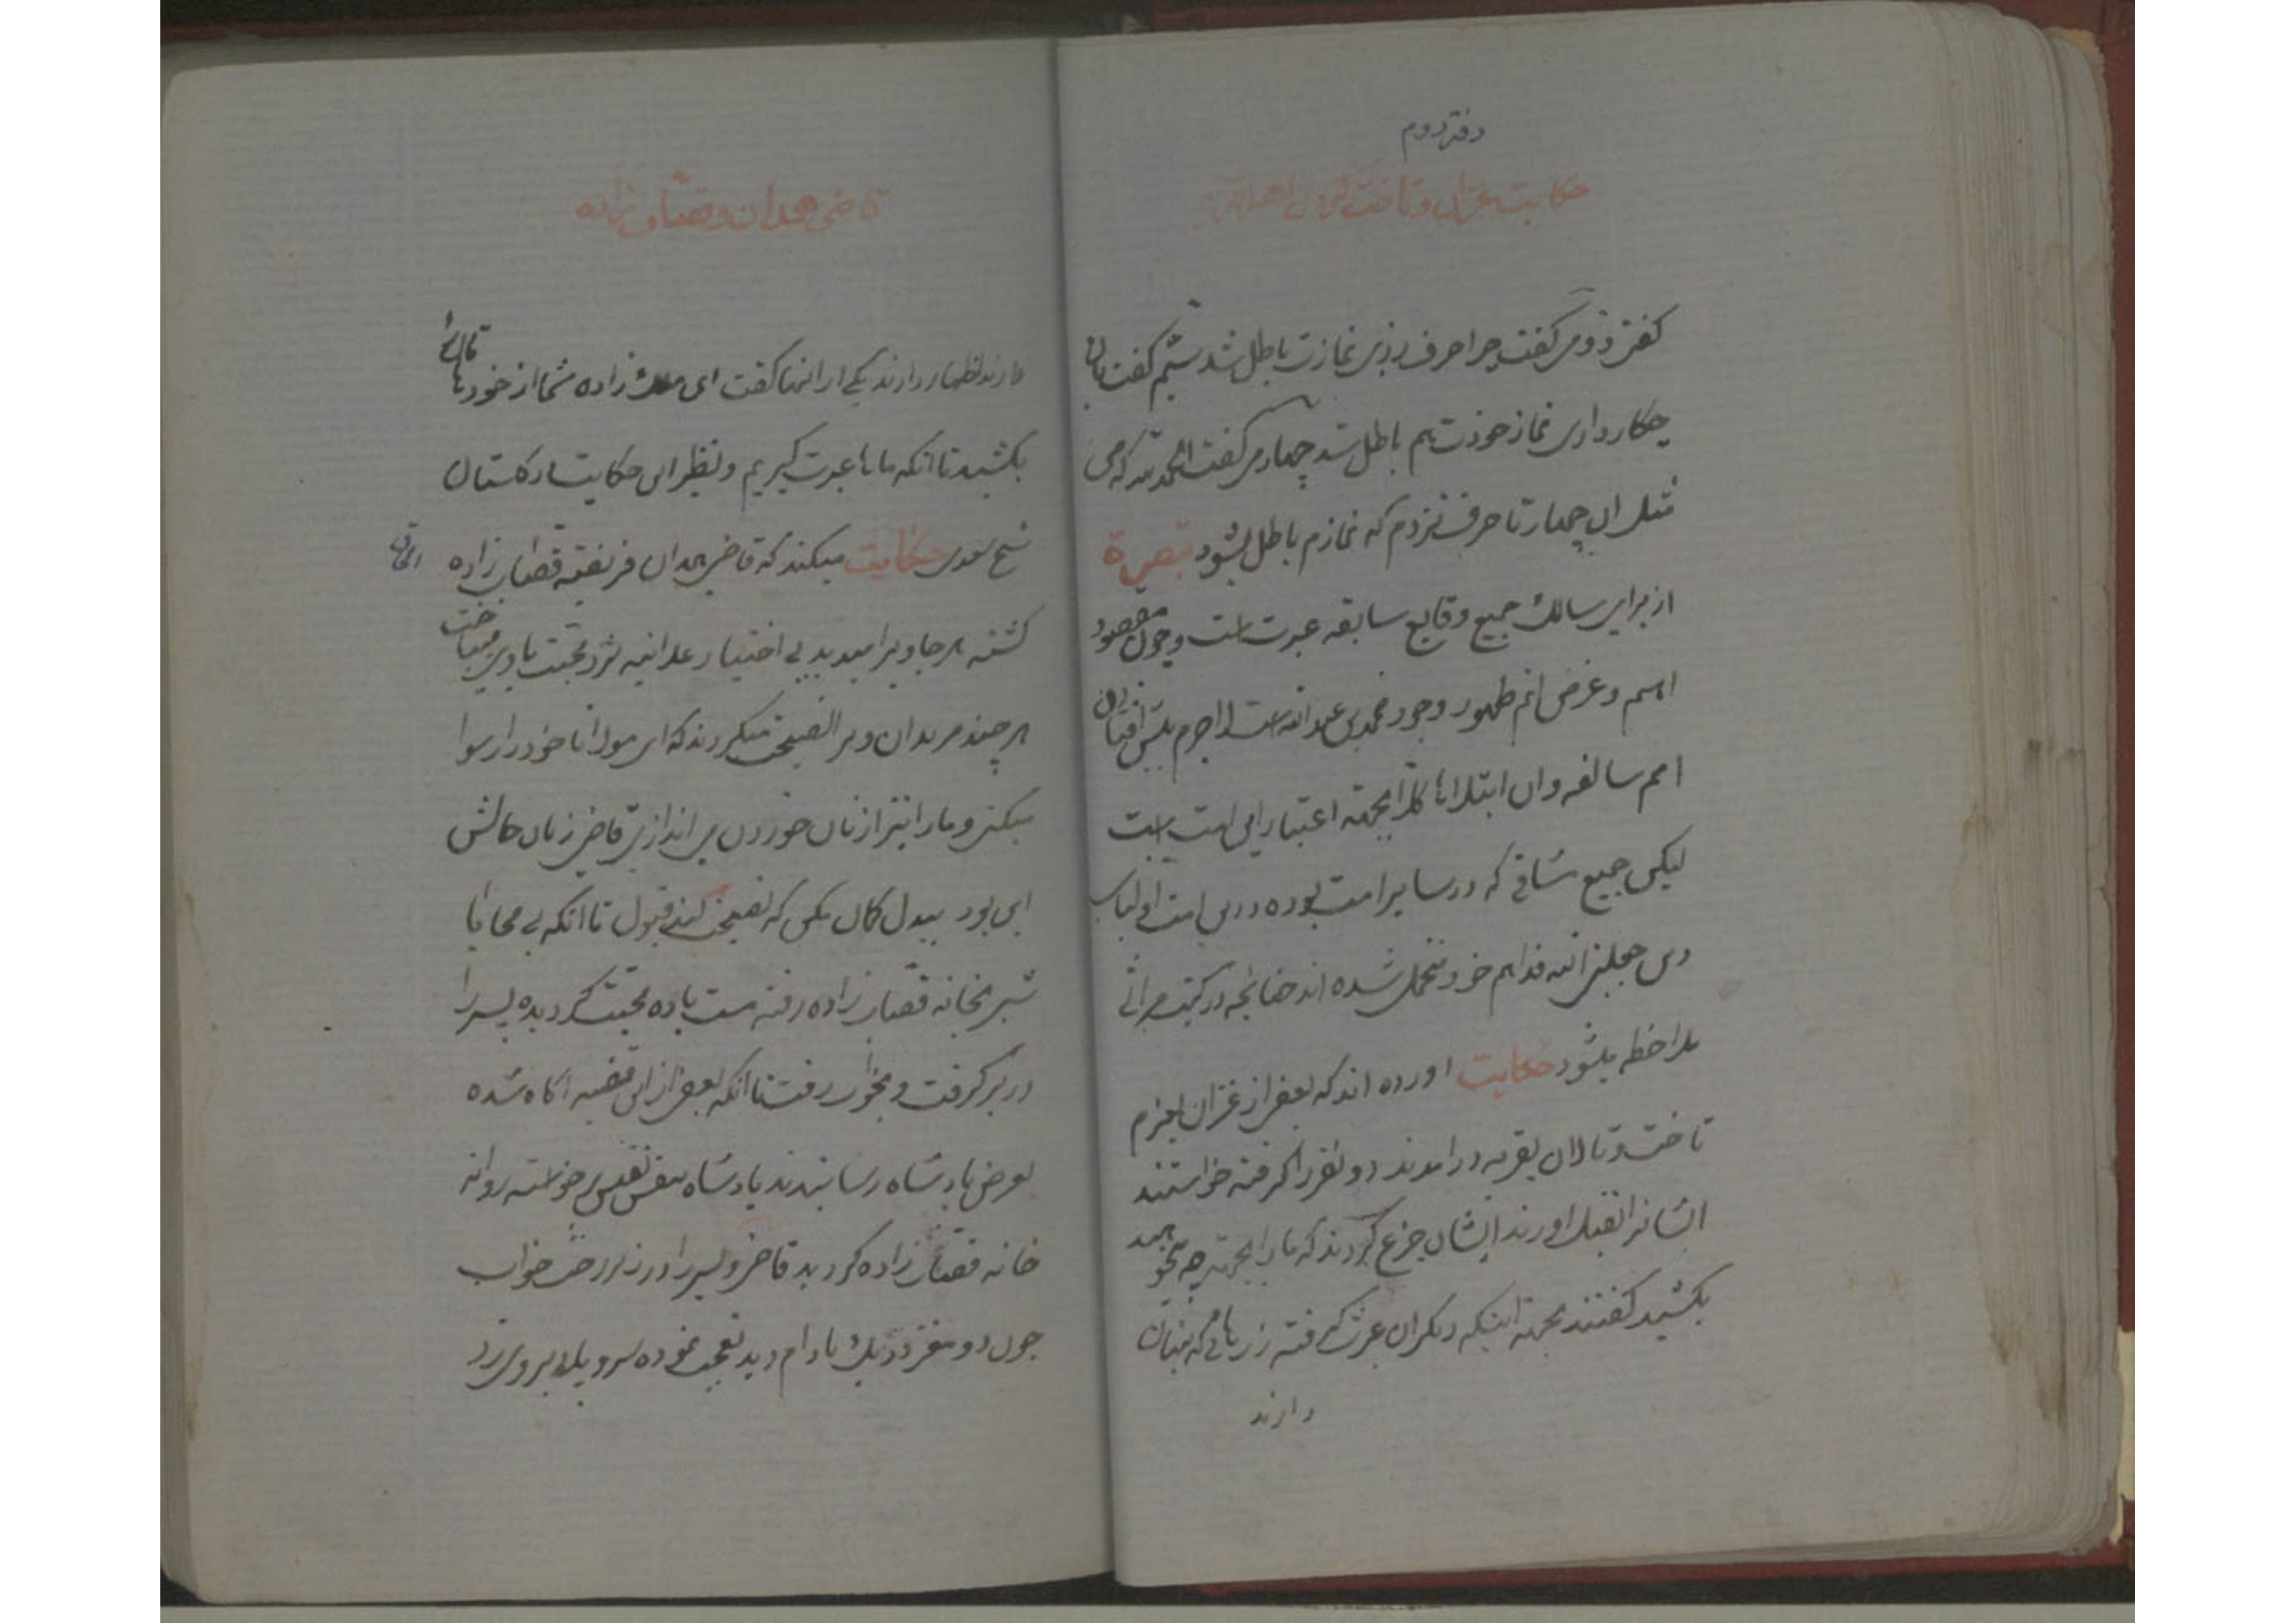 دفتر دوم
حکایت غزان و تاخت
گفتن دومی گفت چرا حرف زدی نمازت باطل شد سیّم گفت بان
چکار داری نماز خودت هم باطل شد چهارمی گفت الحمد لله که من
مثل این چهار تا حرف نزدم که نمازم باطل بشود تبصرة
از برای سالک جمیع وقایع سابقه عبرت است و چون مقصود
اهم و غرض اتم ظهور وجود محمد بن عبد الله است لاجرم پس
امم سالفه و ان ابتلاها کلّا بجهة اعتبار این امت است
لیکن جمیع مشاقی که در سایر امت بوده درین امت اولیای
دین خود متحمل شده اند چنانچه در کتب مراثی
ملاحظه میشود حکایت اورده اند که بعضی از غزان بعزم
تاخت و تالان بقریه درامدند دو نفر را گرفته خواستند
ایشانرا بقتل اورند ایشان جزع کردند که ما را بجهة چه میخواهید
بکشید گفتند بجهة اینکه دیگران عبرت گرفته زر هائی که پنهان
دارند
قاضی همدان و قصّاب زاده
دارند اظهار دارند یکی از انها گفت ای ملک زاده شما از خودهاتان
بکشید تا انکه ماها عبرت گیریم و نظیر این حکایت در گلستان
شیخ سعدی حکایت میکند که قاضی همدان فریفته قصاب زاده
گشته هر جا ویرا میدید بی اختیار علانیه نرد محبت با وی میباخت
هر چند مریدان ویرا نصیحت میکردند که ای مولانا خود را رسوا
میکنی و ما را نیز از نان خوردن می اندازی قاضی زبان حالش
این بود بیدل گمان مکن که نصیحت کند قبول تا انکه بی محابا
شبی بخانه قصّاب زاده رفته مست باده محبت گردیده پسر را
در بر گرفت و بخواب رفت تا انکه بعضی از این قضیه اگاه شده
بعرض پادشاه رسانیدند پادشاه بنفس نفیس برخواسته روانه
خانه قصّاب زاده گردید قاضی و پسر را در زیر رخت خواب
چون دو مغز در یک بادام دید تعجب نموده